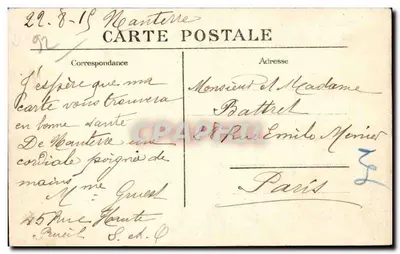 22-8-15 Nanterre
92
CARTE POSTALE
Correspondance
J'espère que ma
carte vous trouvera
en bonne santé
De Nanterre une
cordiale poignée de
mains
Mme
45 Rue Haute
S. et O
Adresse
Monsieur et Madame
Battrel
28 Rue Emile Menier
Paris